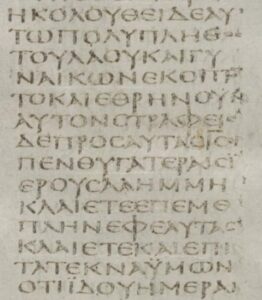 ΗΚΟΛΟΥΘΕΙΔΕΑΥ
ΤΩΠΟΛΥΠΛΗΘ
ΤΟΥΛΑΟΥΚΑΙΓΥ
ΝΑΙΚΩΝΕΚΟΠΤ
ΤΟΚΑΙΕΘΡΗΝΟΥΝ
ΑΥΤΟΝΣΤΡΑΦΕΙ
ΔΕΠΡΟΣΑΥΤΑΣ
ΠΕΝΘΥΓΑΤΕΡΑΙΣΙ
ΕΡΟΥΣΑΛΗΜΜΗ
ΚΛΑΙΕΤΕΕΠΕΜΕ
ΠΛΗΝΕΦΕΑΥΤΑΣ
ΚΛΑΙΕΤΕΚΑΙΕΠΙ
ΤΑΤΕΚΝΑΫΜΩΝ
ΟΤΙΙΔΟΥΗΜΕΡΑΙ